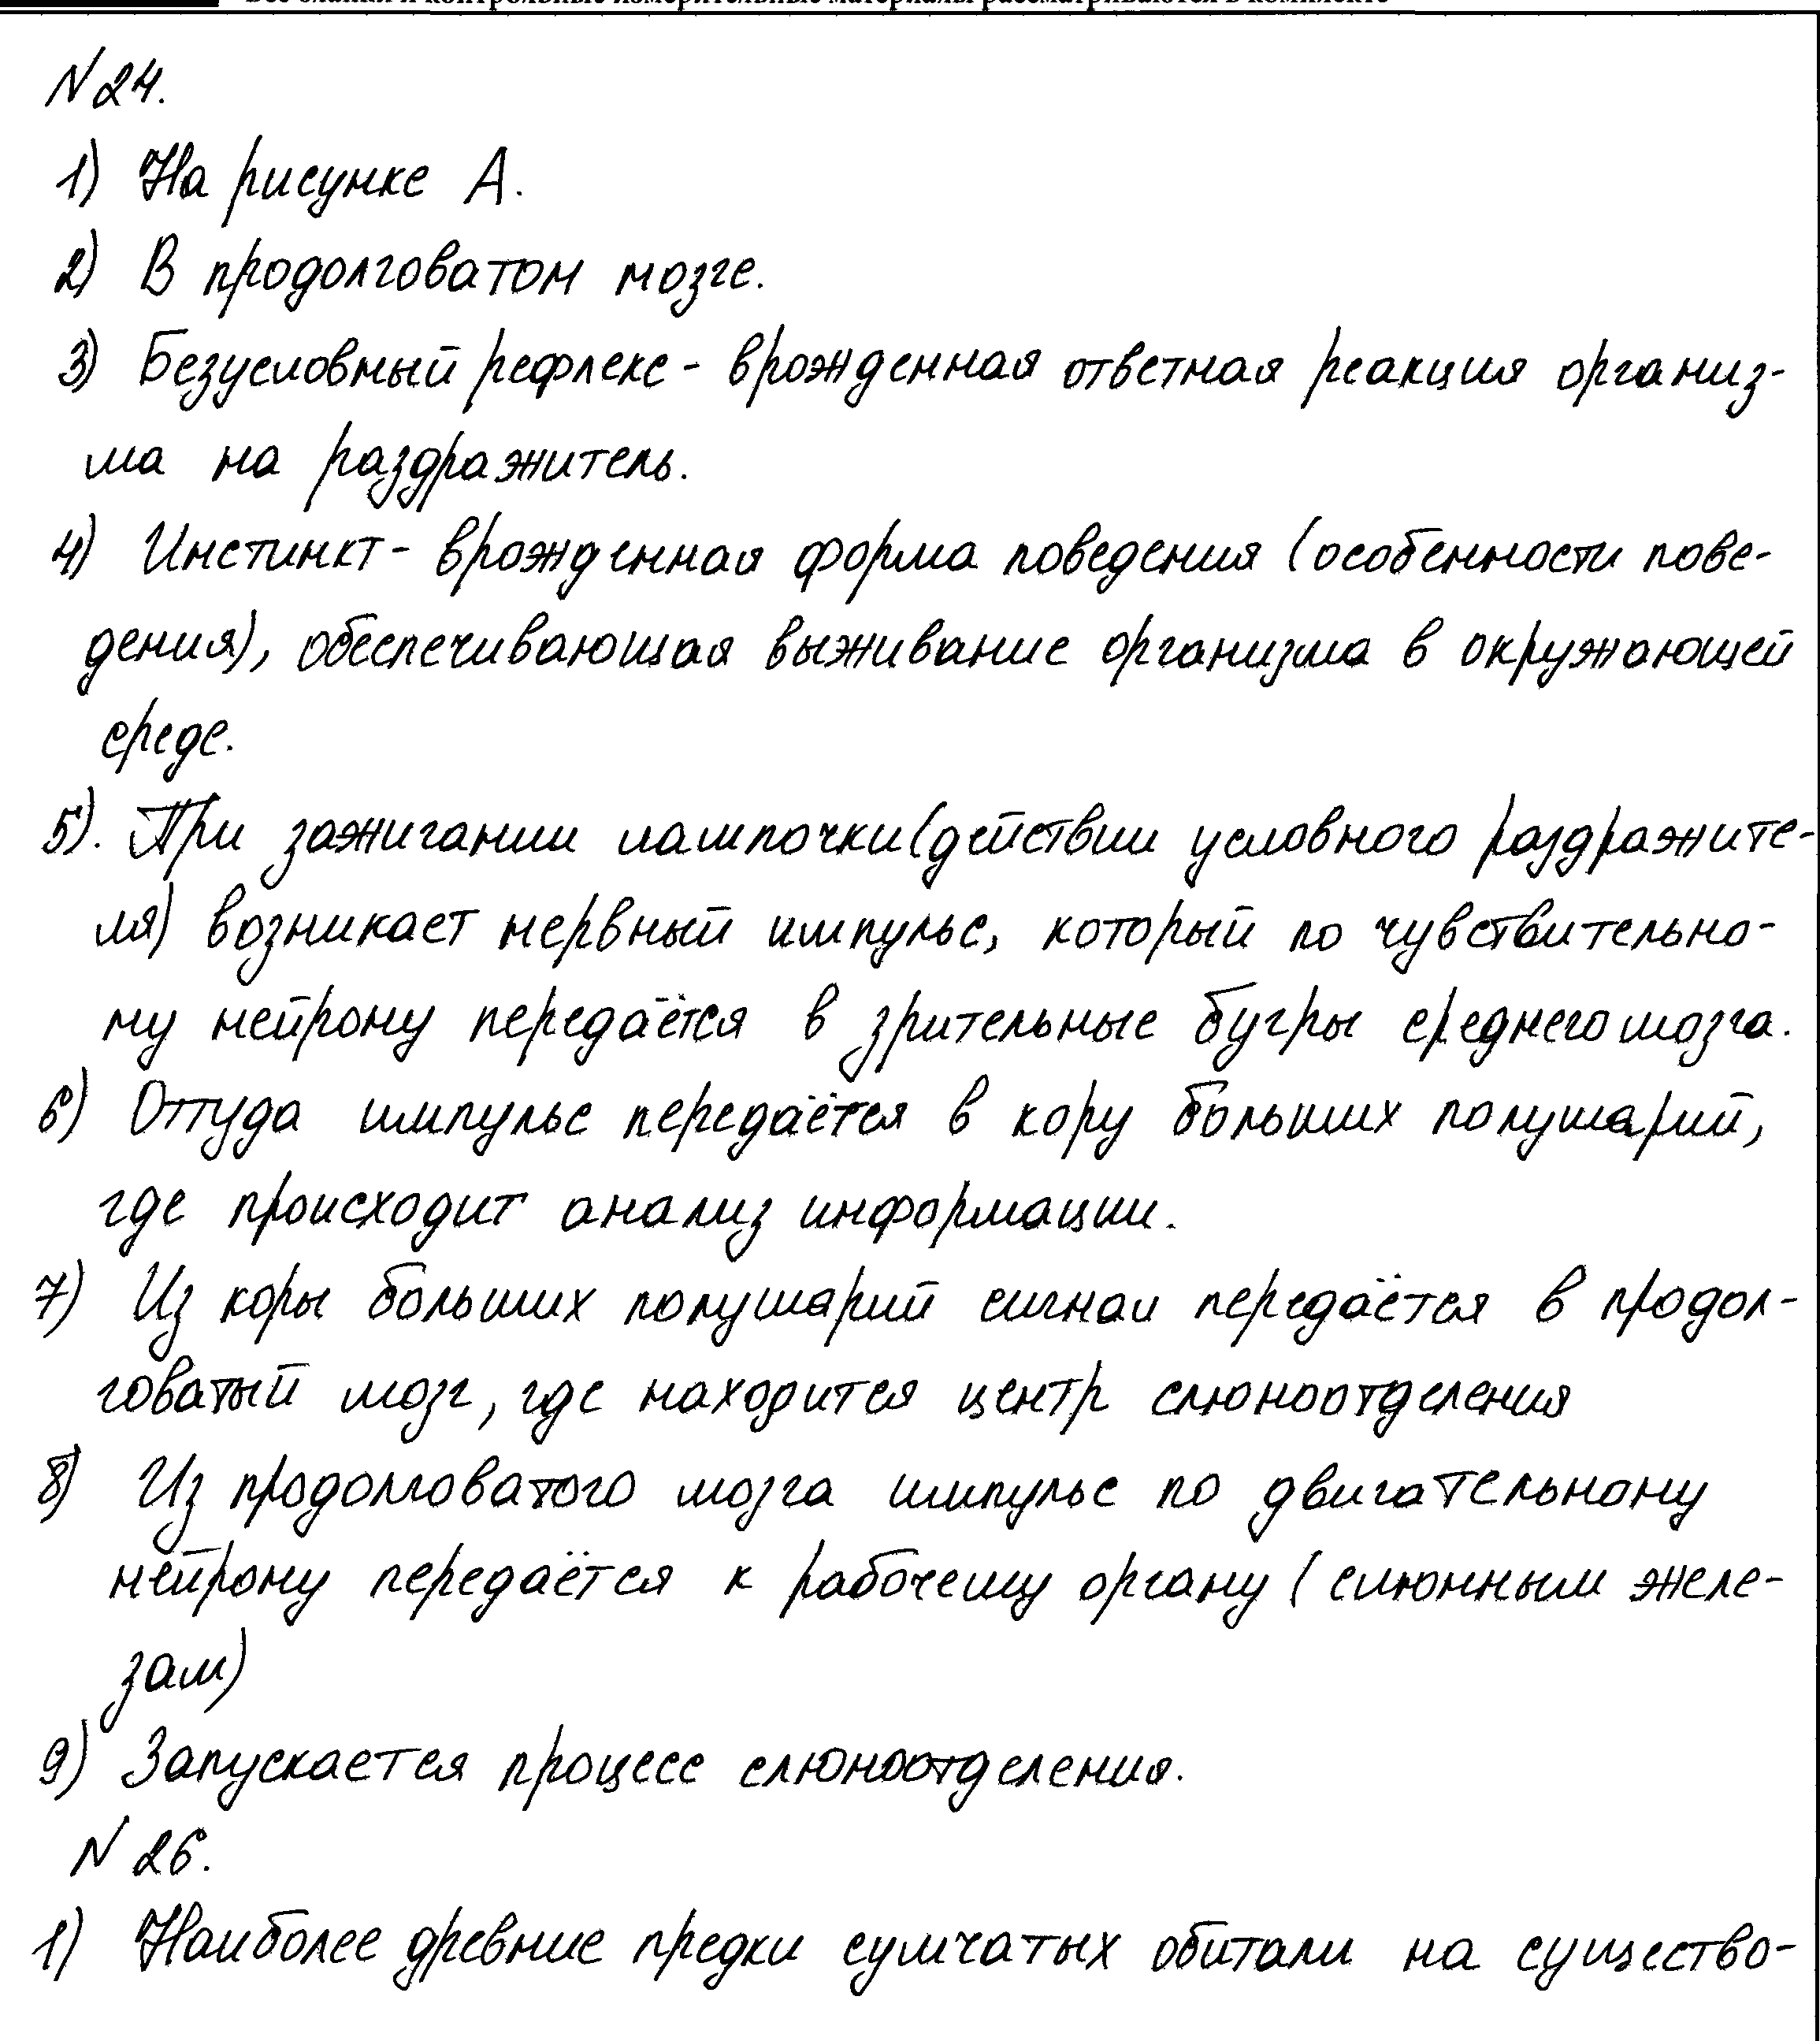 Все бланки и контрольные измерительные материалы рассматриваются в комплекте
N 24.
1) На рисунке А.
2) В продолговатом мозге.
3) Безусловный рефлекс - врожденная ответная реакция организ-
ма на раздражитель.
4) Инстинкт - врожденная форма поведения (особенности пове-
дения), обеспечивающая выживание организма в окружающей
среде.
5). При зажигании лампочки (действии условного раздражите-
ля) возникает нервный импульс, который по чувствительно-
му нейрону передаётся в зрительные бугры среднего мозга.
6) Оттуда импульс передаётся в кору больших полушарий,
где происходит анализ информации.
7) Из коры больших полушарий сигнал передаётся в продол-
говатый мозг, где находится центр слюноотделения
8) Из продолговатого мозга импульс по двигательному
нейрону передаётся к рабочему органу (слюнным желе-
зам)
9) Запускается процесс слюноотделения.
N 26.
1) Наиболее древние предки сумчатых обитали на существо-